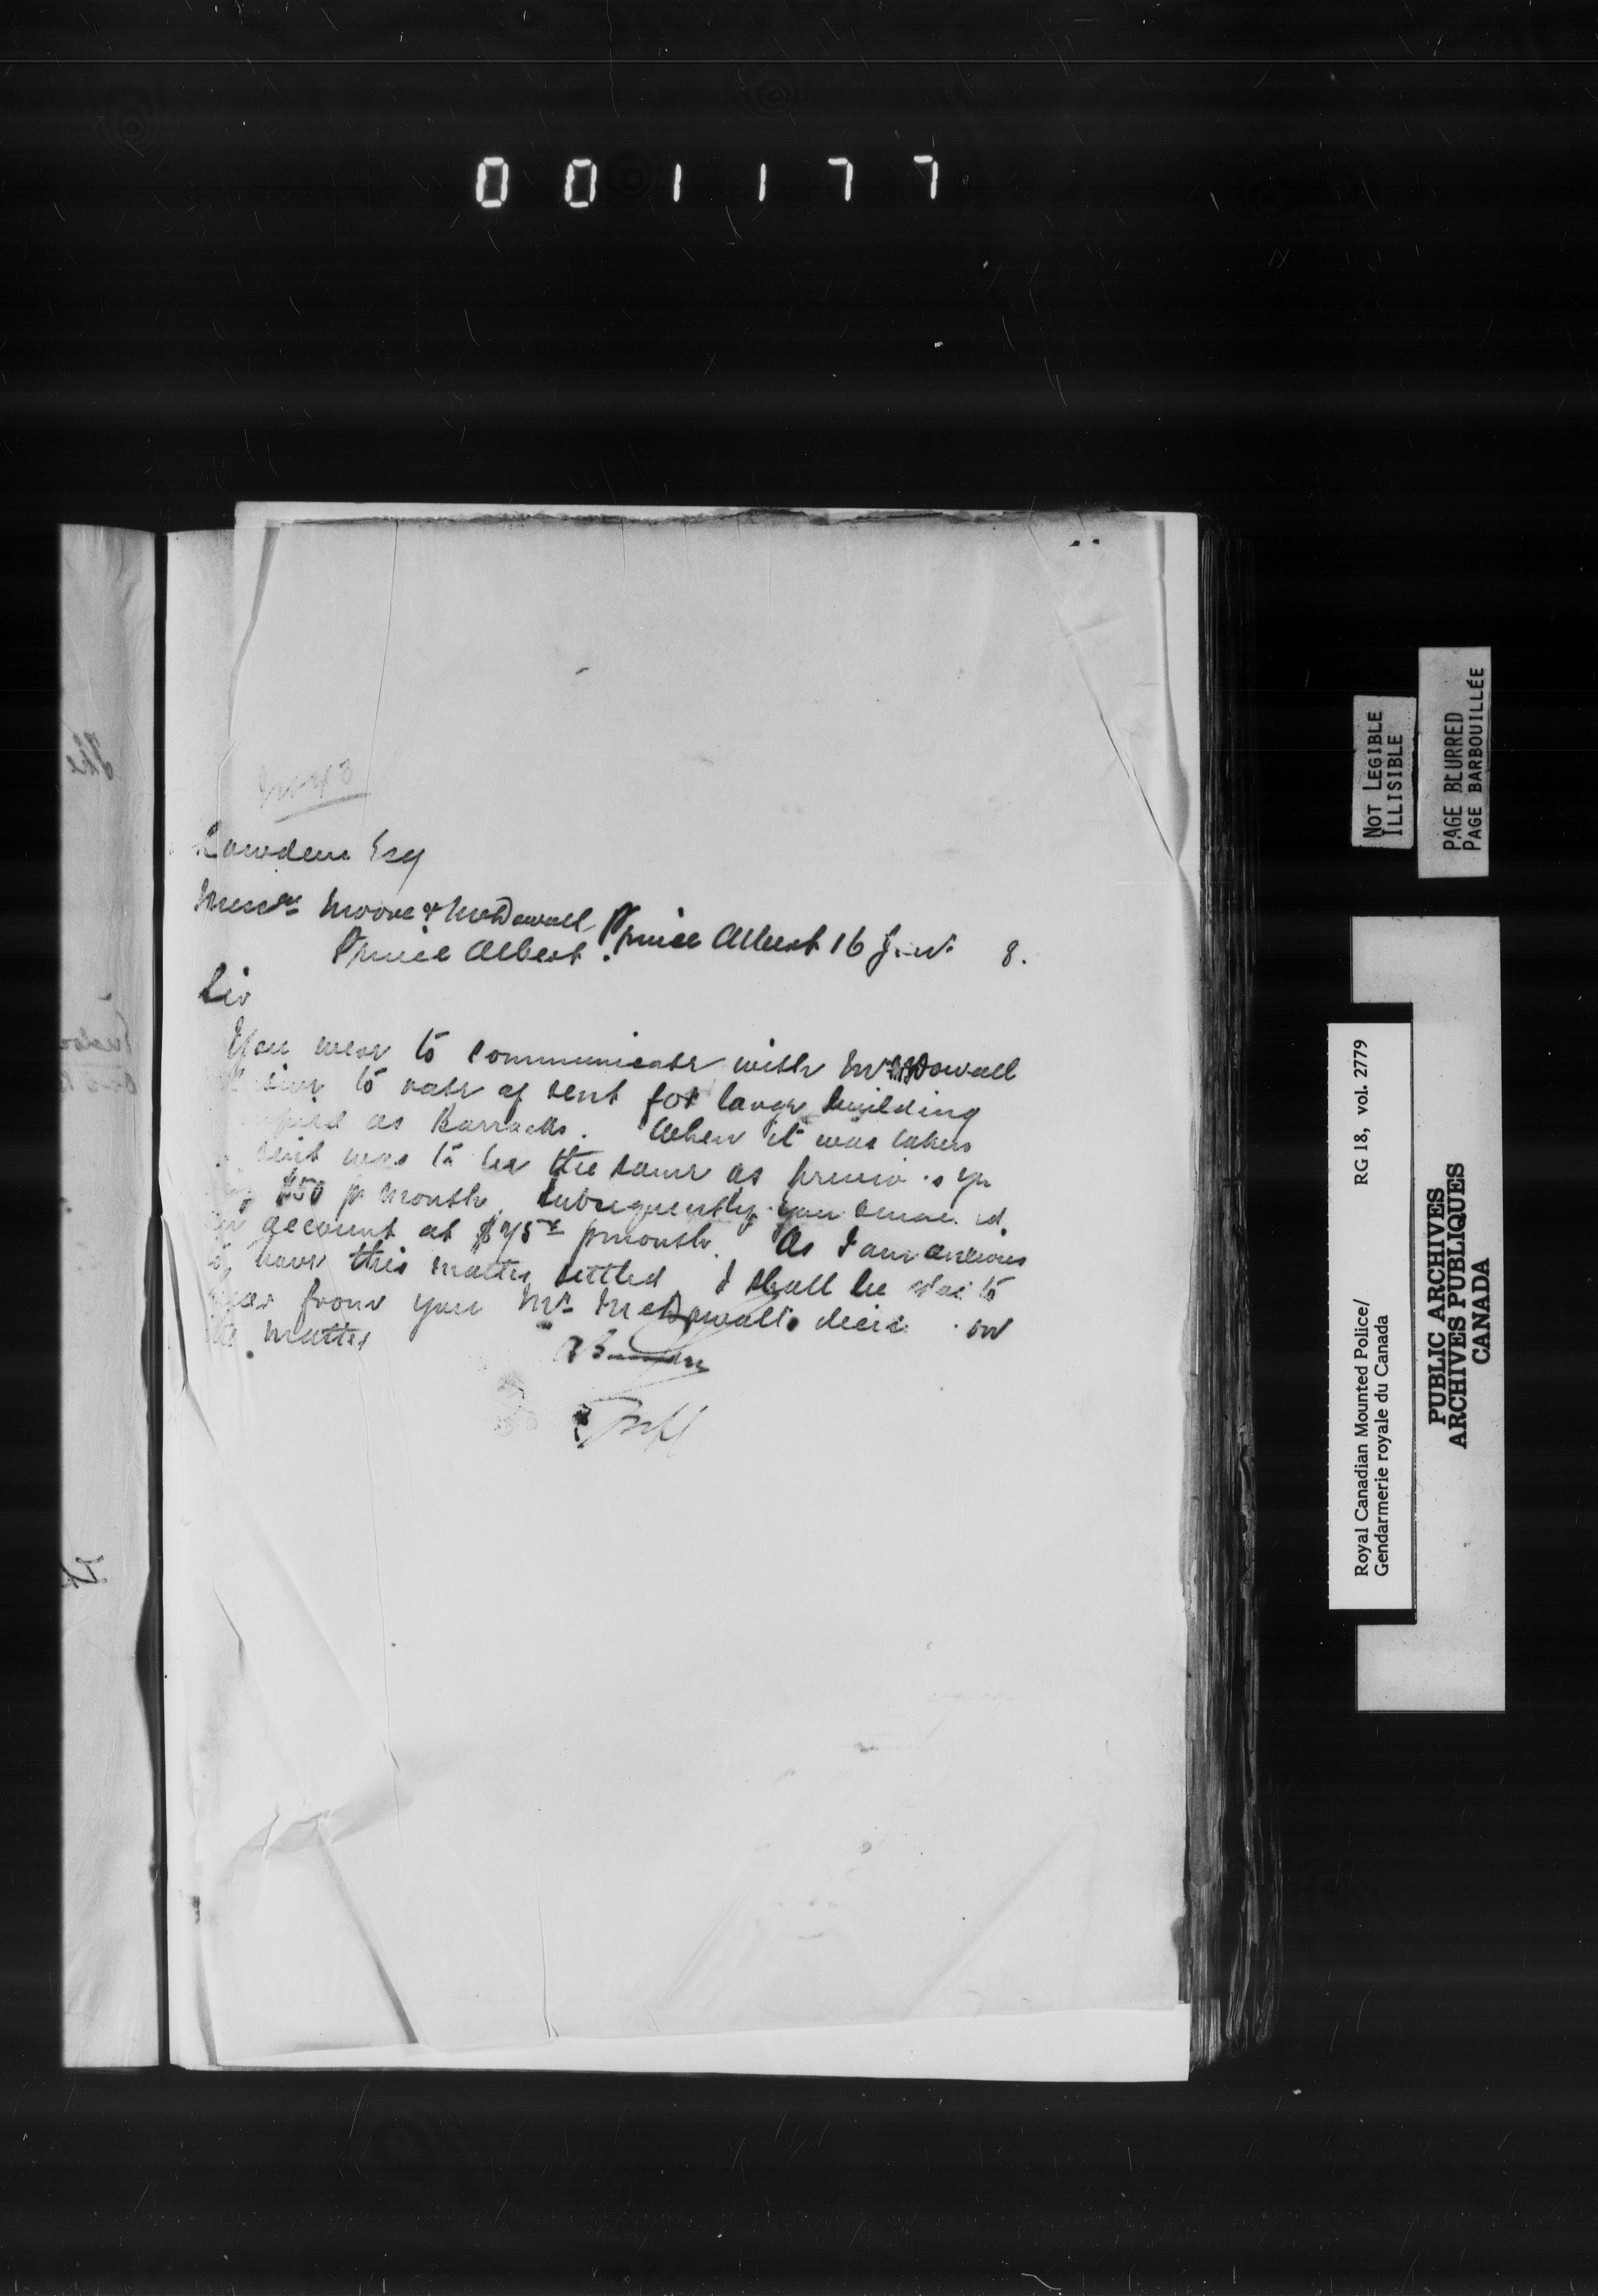 001177
Lowden Esq
Messrs Moore & McDowall
Prince Albert.
Prince Albert 16 8.
Sir
You were to communicate with Mr McDowall
to rate of rent for large building
as Barracks. When it was taken
rent was to be the same as
$50 p month. Subsequently you
account at $75 p month. As I am anxious
to have this matter settled I shall be to
hear from you Mr McDowall's on
the matter
NOT LEGIBLE
ILLISIBLE
PAGE BLURRED
PAGE BARBOUILLÉE
Royal Canadian Mounted Police/ RG 18, vol. 2779
Gendarmerie royale du Canada
PUBLIC ARCHIVES
ARCHIVES PUBLIQUES
CANADA